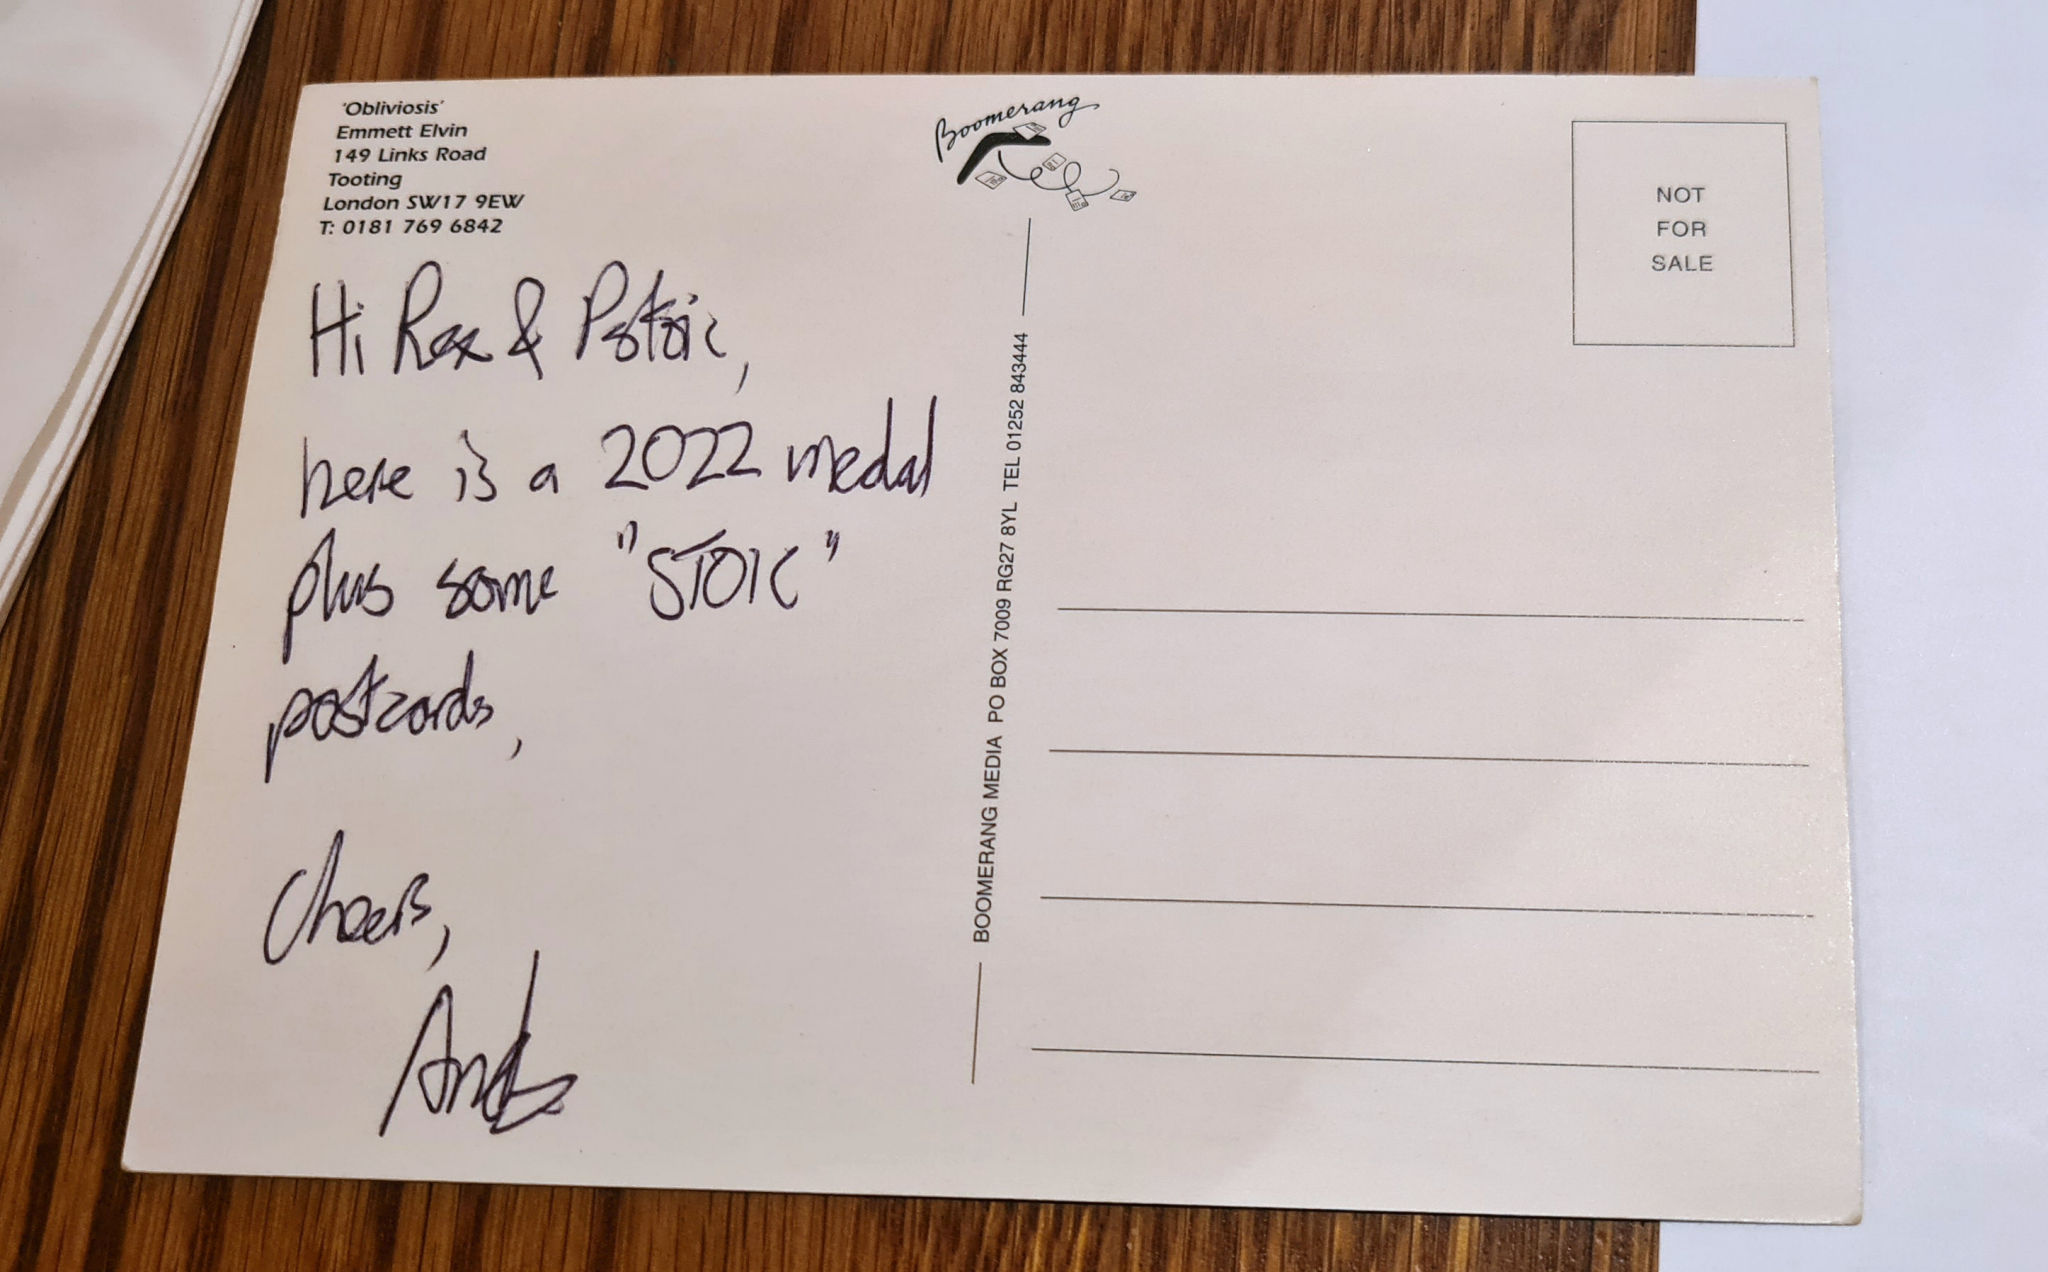 'Obliviosis'
Emmett Elvin
149 Links Road
Tooting
London SW17 9EW
T: 0181 769 6842
Hi Rex &
here is a 2022 medal
plus some "STOIC"
postcards,
Cheers,
Boomerang
BOOMERANG MEDIA PO BOX 7009 RG27 8YL TEL 01252 843444
NOT
FOR
SALE